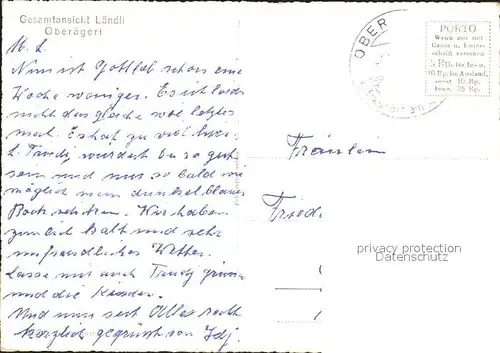 Gesamtansicht Ländli
Oberägeri
M. L.
Nun ist Gottlob schon eine
Woche weniger. Es ist leider
nicht das gleiche wie letztes
mal. Es hat zu viel
L. Trudj, würdest du so gut
sein und mir so bald wie
möglich mein dunkelblauer
Rock schicken. Wir haben
zimlich kalt und sehr
unfreundliches Wetter.
Lasse mir auch Trudj
und die Kinder.
Und nun seit Alles recht
herzlich gegrüsst von Idj.
OBER
PORTO
Wenn nur mit
Gruss u. Unter-
schrift versehen
5 Rp. im In- u.
10 Rp. im Ausland,
sonst 10 Rp.
Fräulein
Fried
privacy protection
Datenschutz